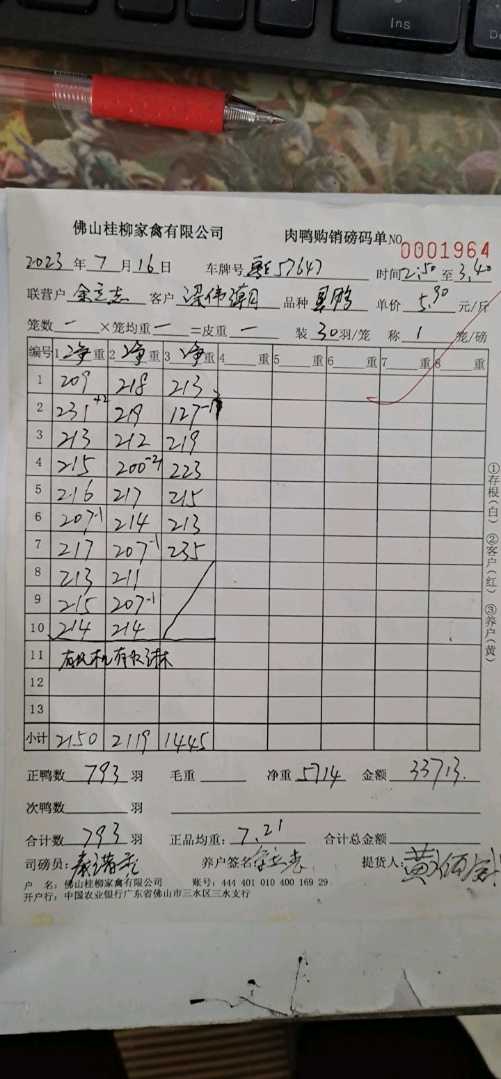 Ins
佛山桂柳家禽有限公司 肉鸭购销磅码单 NO 0001964
2023 年 7 月 16 日 车牌号 57647 时间 2:50 至 3:40
联营户 客户 梁伟 品种 单价 5.90 元/斤
笼数 一 ×笼均重 一 =皮重 一 装 30 羽/笼 称 1 笼/磅
编号 1 净 重 2 净 重 3 净 重 4 重 5 重 6 重 7 重 8 重
1 209 218 213
2 231 +2 219 127
3 213 212 219
4 215 200 -2 223
5 216 217 215
6 207 -1 214 213
7 217 207 -1 235
8 213 211
9 215 207 -1
10 214 214
11
12
13
小计 2150 2119 1445
正鸭数 793 羽 毛重 净重 5714 金额 33713.
次鸭数 羽
合计数 793 羽 正品均重: 7.21 合计总金额
司磅员: 养户签名 提货人: 黄
户 名: 佛山桂柳家禽有限公司 账号: 444 401 010 400 169 29
开户行: 中国农业银行广东省佛山市三水区三水支行
①存根(白) ②客户(红) ③养户(黄)